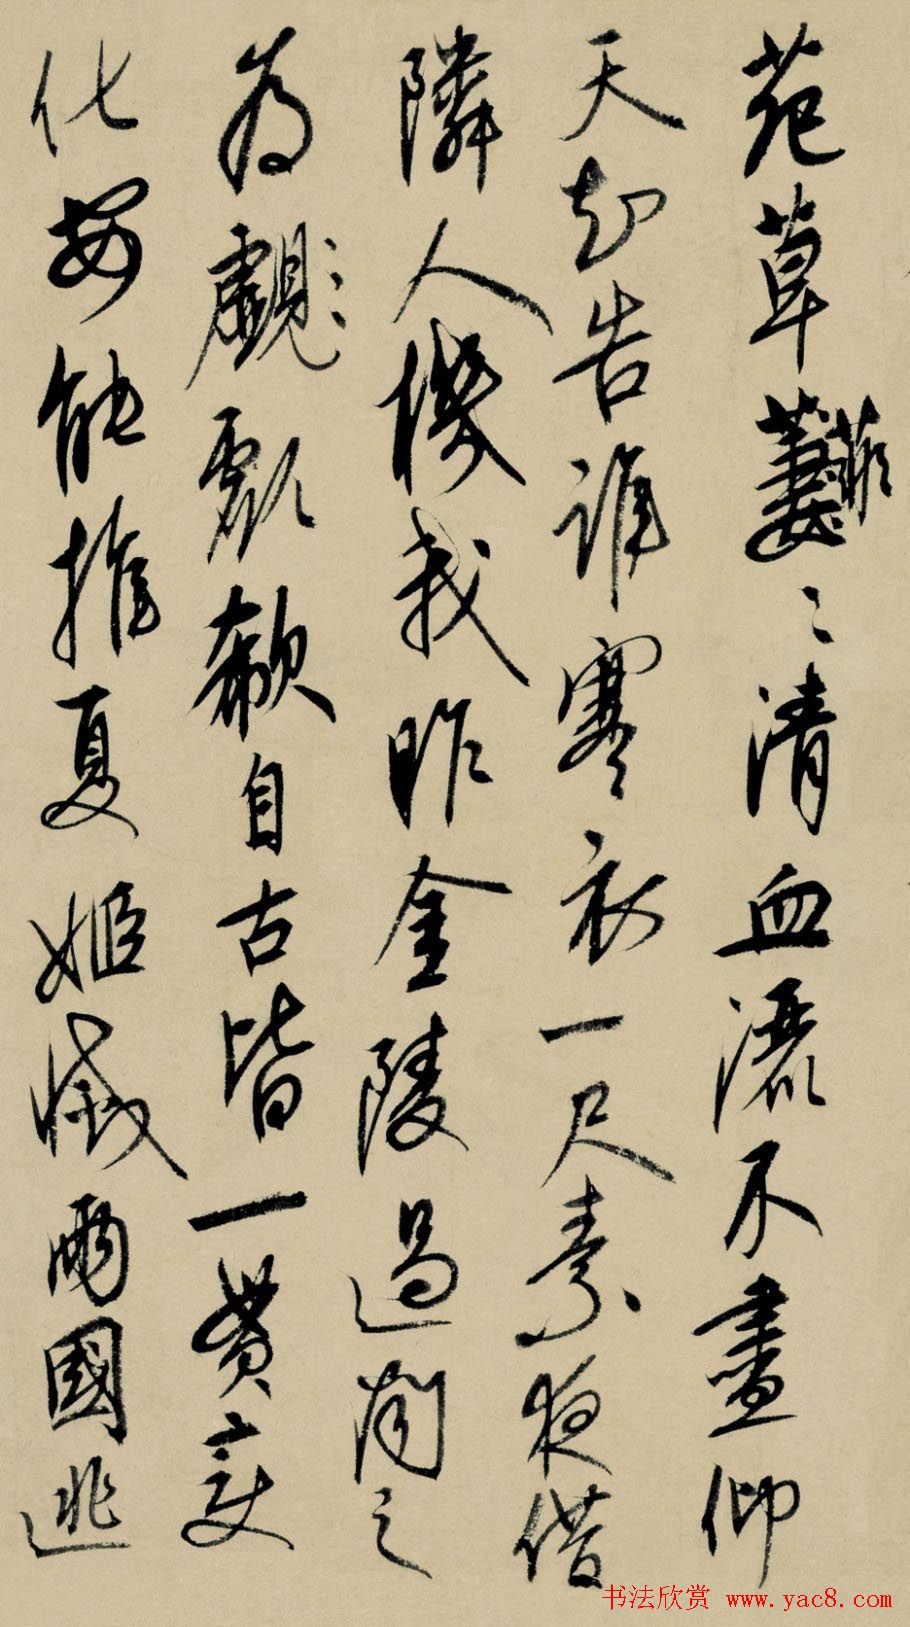 苑草萋菲〻清血灑不盡仰
天知告誰寒衣一尺素夜借
隣人機我昨金陵過聞之
為覷歔欷自古皆一貫變
化安能推夏姬滅兩國逃
书法欣赏 www.yac8.com